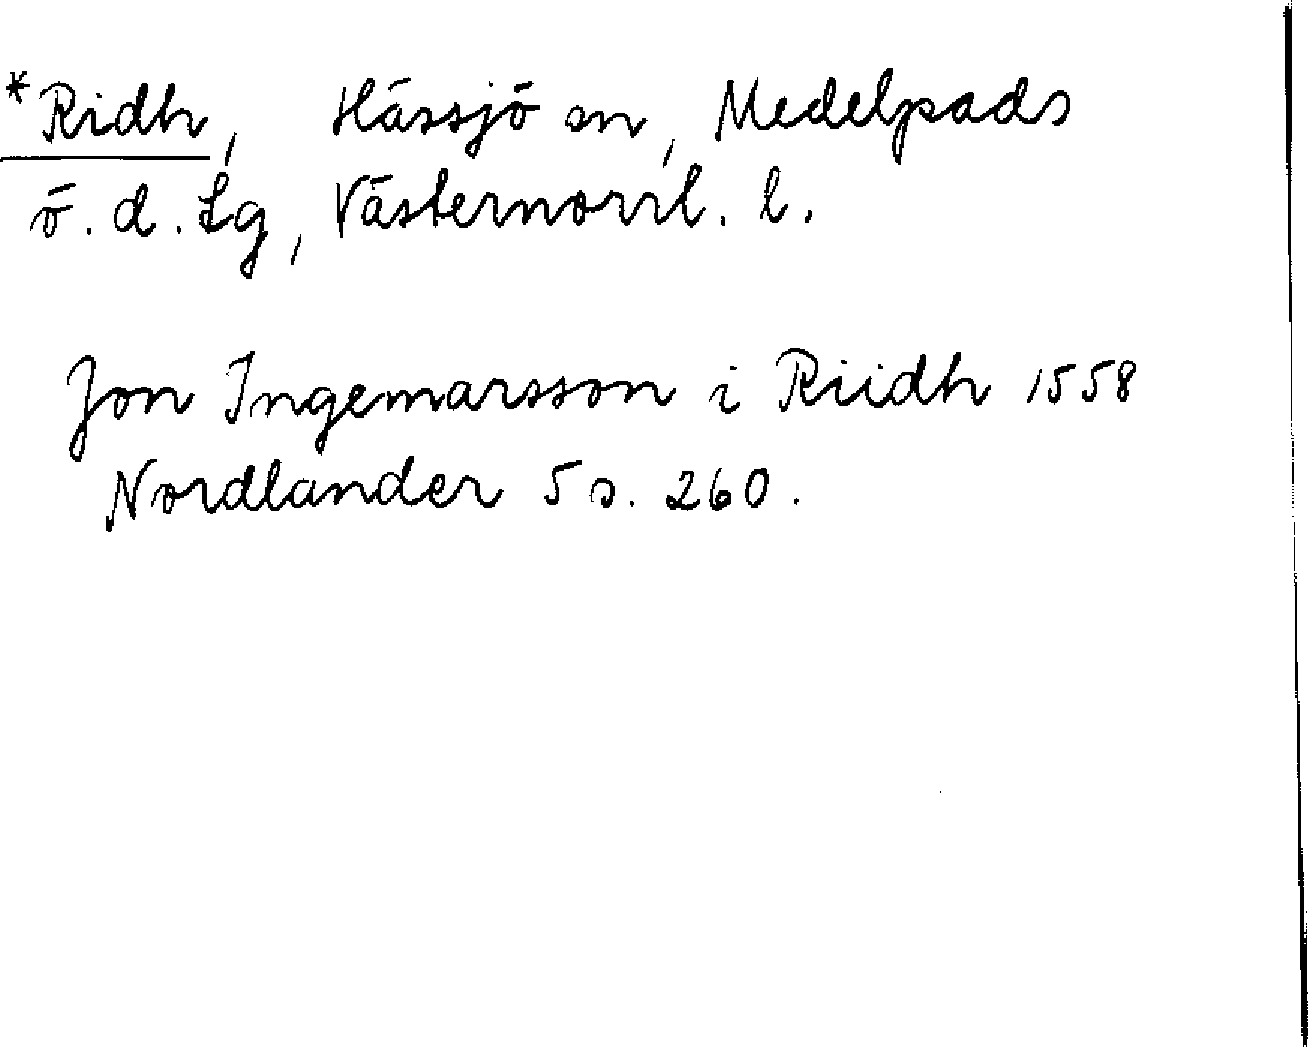 *Ridh, Hässjö sn, Medelpads
ö. d. Lg, Västernorrl. l.
Jon Ingemarsson i Riidh 1558
Nordlander 5 s. 260.